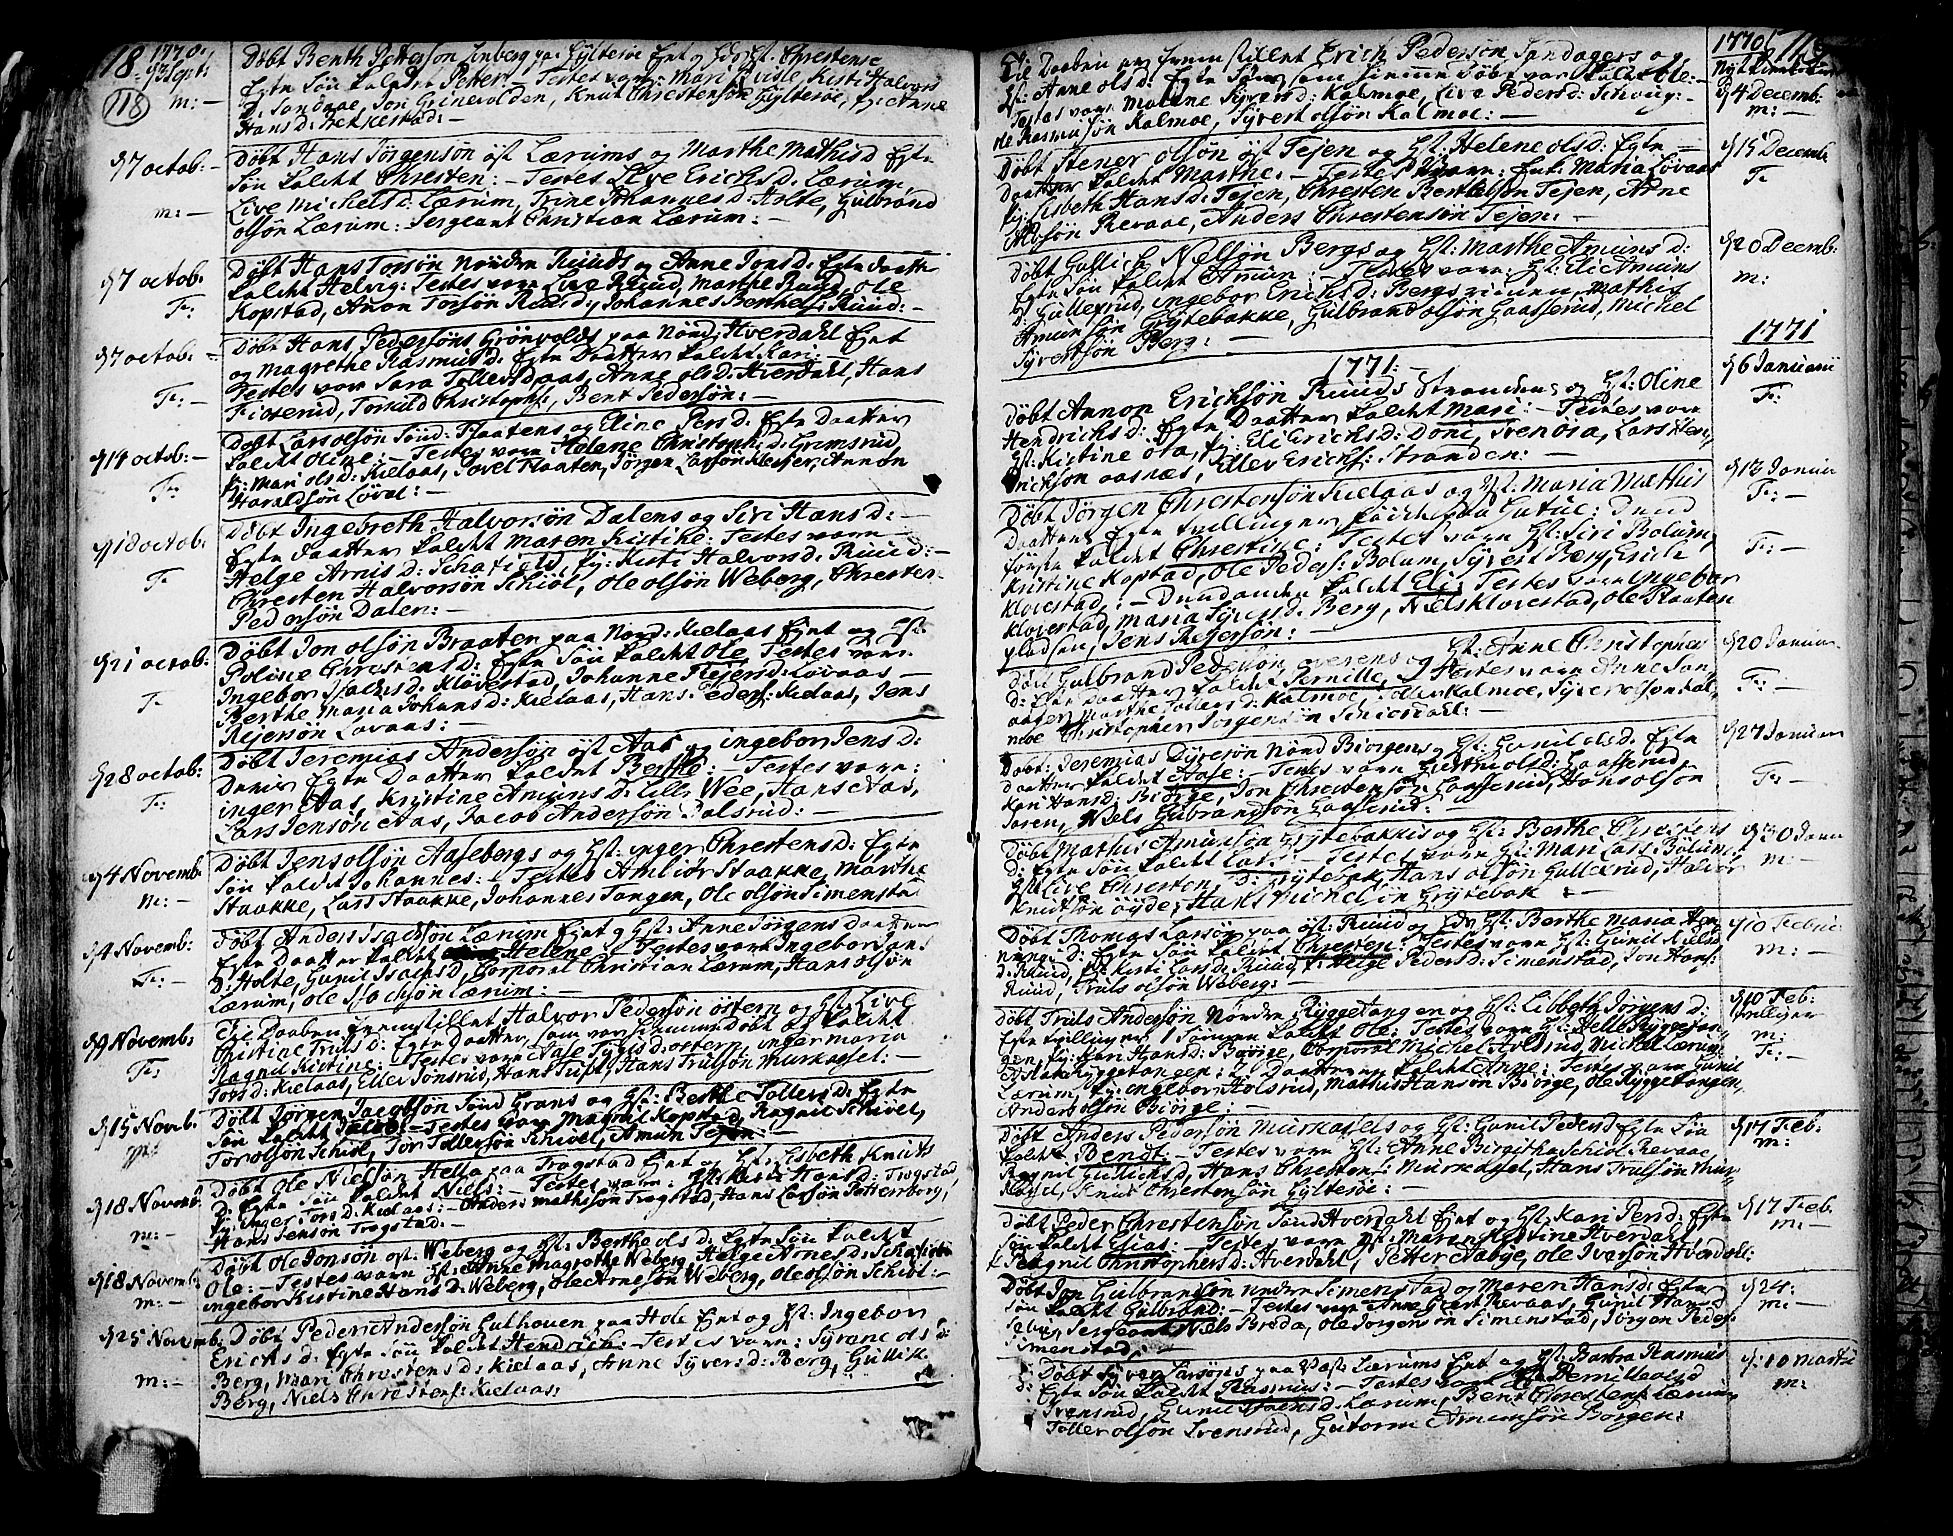 118 1770
118
d 23 Sept: m: —
Døbt Benth Pettersøn
Egte Søn kaldet Petter: — Testes vare: Mari Kisle, Kisti Halvors
D: Sandaae, Jon Grinevolden, Knut Chrestensøn Gylterøe, fy: Anne
Hans D:
d 7 octob: — m: —
Døbt Hans Jørgensøn øst Lærums og Marthe Mathis D Egte
Søn kaldet Chresten: — Testes Live Erichs D: Lærum,
Live Michels D: Lærum, Trine Johannes D: Holte, Gulbrand
olsøn Lærum: Sergeant Christian Lærum: —
d 7 octob: F:
Døbt Hans Torsøn Nordre Ruuds og Anne Jons D: Egte Daatter
kaldet Helvig: Testes vare Live Ruud, Marthe Ruud, Ole
Kopstad, Anon Torsøn Ruud, Johannes Benthels: Ruud: —
d 7 octob: — F: —
Døbt Hans Pedersøns Grønvolds paa Nord: Hverdahl Egnt
og Magrethe Rasmus D: Egte Daatter kaldet Kari: —
Testes vare Sara Tollers Daas, Anne ols D: Hverdahl, Hans
Fisterud, Torkild Christophs:, Bent Pedersøn: —
d 14 octob: — F:
Døbt Lars olsøn Sønd: Plaatens og Eline Pers D: Egte Daatter
kaldet Oline: — Testes vare Helene Christoph: D: Grimsrud
fy: Mari ols D: Kielaas, Povel Plaaten, Jørgen Larssøn Kløster, Annon
Haraldsøn Løvaas: —
d 18 octob: F
Døbt Ingebreth Halvorsøn Dalens og Siri Hans D: —
Egte Daatter kaldet Maren Kistine: Testes vare —
Helge Arnis D: Schatiold, fy: Kisti Halvors D: Ruud: —
Chresten Halvorsøn Schiøl, Ole olsøn Weberg, Chresten
Pedersøn Dalen: —
d 21 octob: F —
Døbt Jon olsøn Braaten paa Nord: Kielaas Egnt og Hst:
Poline Chrestens D: Egte Søn kaldet Ole Testes vare
Ingebor Isachs D: Kløvestad, Johanne Rejers D: Løvaas —
Berthe Maria Johans D: Kielaas, Hans Peders: Kielaas, Jens
Rejersøn Løvaas: —
d 28 octob: F: —
Døbt Jeremias Andersøn øst Aas og ingebor Jens D:
Egte Daatter kaldet Berthe: — Testes vare:
inger Aas, Kristine Amuns D: Lille Wee, Hans Aas,
Lars Jensøn Aas, Jacob Andersøn Dalsrud: —
d 4 Novemb: m: —
Døbt Jens olsøn Aasebergs og Hst: inger Chrestens D: Egte
Søn kaldet Johannes: Testes Ambiør Staakke, Marthe
Staakke, Lars Staakke, Johannes Tangen, Ole olsøn Simenstad
d 4 Novemb: F: —
Døbt Anders Isachsøn Lærum Egnt og Hst: Anne Jørgens Daatter
Egte Daatter kaldet Helene — Testes vare Ingebor Jans
D: Holte, Gunil Isachs D, Corporal Christian Lærum, Hans olsøn
Lærum, ole Isachsøn Lærum: —
d 9 Novemb: F:
Til Daaben fremstillet Halvor Pedersøn østern og Hst: Live
Kristine Truls D: Egte Daatter, som var hiemmedøbt og kaldet
Ragnil Kistine: — Testes vare Aase Tyris D: østern, inger Maria
Tors D: Kielaas, Eller Jønsrud, Hans Tuft, Hans Trulsøn Murkassel: —
d 15 Novb: m:
Døbt Jørgen Jacobsøn Sønd Grans og Hst: Berthe Tollers D: Egte
Søn kaldet Jacob: — Testes vare Magnil Kopstad, Ragnil Schivel,
Tor olsøn Schiøl, Tor Tollersøn Schivel, Amun Tejen: —
d 18 Novemb: m: —
Døbt Ole Nielsøn Hella paa Trogstad Egnt og Hst: Lisbeth Knuts
D: Egte Søn kaldet Niels: — Testes vare: Kisti Hans D: Trogstad,
fy: inger Tors D: Kielaas: — Anders Mathisøn Trogstad, Hans Larsøn Pottersberg,
Hans Jensøn Trogstad: —
d 18 Novemb: m: —
Døbt Ole Jonsøn øst: Weberg og Hst: Berthe ols D: Egte Søn kaldet
Ole: — Testes vare Hst: Anne Magrethe Weberg, Helge Arnes D: Schatiold
ingebor Kistine Hans D: Weberg, Ole Arnesøn Weberg, Ole olsøn Schiøl: —
d 25 Novemb: m: —
Døbt Peder Andersøn Luthoven paa Hole Egnt og Hst: Ingebor
Erichs D: Egte Søn kaldet Hendrich: — Testes vare: Syrane ols D:
Berg, Mari Chrestens D: Kielaas, Anne Syvers D: Berg, Gullik
Berg, Niels Chrestens: Kielaas:
1770
d 4 Decemb: m: —
Til Daaben er fremstillet Erich Pedersøn Sandagers og
Hst: Anne ols D: Egte Søn, som hiemme døbt var kaldet Ole: —
Testes vare Malene Syvers D: Kalmoe, Live Peders D: Schoug: —
Ole Rasmusøn Kalmoe, Syvert olsøn Kalmoe: —
d 15 Decemb F
Døbt Stener olsøn øst Tejen og Hst: Helene ols D: Egte —
Daatter kaldet Marthe: — Testes vare: Hst: Maria Løvaas
fy: Lisbeth Hans D: Tejen, Chresten Berthelsøn Tejen, Arne
olsøn Revaae, Anders Chrestensøn Tejen: —
d 20 Decemb: m:
Døbt Gullich Nelsøn Bergs og Hst: Marthe Amuns D:
Egte Søn kaldet Amun: — Testes vare: Hst: Eli Amuns
D: Gullexrud, ingebor Erichs D: Bergs, Mathis
Amunsøn Grytebakke, Gulbrand olsøn Gaasserud, Michel
Syvertsøn Berg: —
1771: —
1771
d 6 Januarii F:
Døbt Annon Erichsøn Ruuds Stranden og Hst: Oline
Hendrichs D: Egte Daatter kaldet Mari: — Testes vare
Hst: Kistine ola, fy: Eli Erichs D: Doni, Svenora, Lars Hen
drickson aasnæs, Eller Erichs: Stranden: —
d 13 Januar F: — F: —
Døbt Jørgen Chrestensøn Kielaas og Hst: Maria Mathis
Daatter Egte Tvillinger
første kaldet Chrestine: Testes vare Hst: Siri Bolum,
Kristine Kopstad, Ole Peders: Bolum, Syvert Berg, Erich
Klovestad: — Den anden kaldet Eli: Testes vare Ingebor
Klovestad, Maria Syvers D: Berg, Niels Klovestad, Ole Plaaten
Jens Rejersøn: —
d 20 Januar F: —
Døbt Gulbrand Pedersøn overens og Hst: Anne Christophers
D: Egte Daatter kaldet Pernille, Testes vare Anne San
ager, Marthe Tollers D: Kalmoe: oller Kalmoe, Syver olsøn Kal
moe Christopher Jørgensøn Schiørdal: —
d 27 Januar F: —
Døbt: Jeremias Dyresøn Nord Biørgens og Hst: Gunil ols D: Egte
Daatter kaldet Aase: — Testes vare Gurthe ols D: Gaasserud,
Kari Hans D: Biørge, Jon Chrestensøn Gaasserud, Hans olsøn
Soren, Niels Gulbrandsøn Gaasserud:
d 30 Janu m: —
Døbt Mathis Amunsøn Grytebakkes og Hst: Berthe Chrestens
D: Egte Søn kaldet Lars: — Testes vare Hst: Mari Lars: Bolum,
Hst: Live Chresten: D: Grytebak, Hans olsøn Gullexrud, Halvor
Knutsøn øyde, Hans Michelsøn Grytebak: —
d 10 Februa m: —
Døbt Thomas Larsøn paa øst: Ruud og Hst: Berthe Maria Hen
nings D: Egte Søn kaldet Chresten: Testes vare Hst: Gunil Niels
D: Ruud, fy: Kisti Lars D: Ruud, Helge Peders D: Simenstad, Jon Hans:
Ruud, Truls olsøn Weberg: —
d 10 Feb: tvillinger m: F: —
Døbt Truls Andersøn Nordre Ryggetangen og Hst: Lisbeth Jørgens D:
Egte tvillinger: Sønnen kaldet Ole: Testes vare Hst: Pelle Ryggetan
gen, fy: Kari Hans D: Biørge, Corporal Michel Avelsrud, Michel Lærum,
Ryggetangen: Daatteren kaldet Anne: Testes vare Gunil
Lærum, fy: ingebor Holsrud, Mathis Hansøn Biørge, Ole Ryggetangen,
Anders olsøn Biørge: —
d 17 Feb: m:
Døbt Anders Pedersøn Murkassels og Hst: Gunil Peders D Egte Søn
kaldet Bendt: — Testes vare Hst: Anne Birgitha Schiøl Revaae,
Ragnil Gullichs D:, Hans Chrestens: Murkassel, Hans Trulsøn Mur
kassel, Knut Chrestensøn Gylterøe: —
d 17 Feb: m: —
Døbt Peder Chrestensøn Sønd Hverdahl Egnt og Hst: Kari Pers D: Egte
Søn kaldet Elias: — Testes vare Hst: Maren Kistine Hverdahl
Ragnil Christophers D: Hverdahl, Petter Nabye, Ole Iversøn Hverdahl:
d 24: m: —
Døbt Jon Gulbrandsøn nordre Simenstad og Maren Hans D: Egte
Søn kaldet Gulbrand: — Testes vare Anne Revaas, Gunil Hans D
Sergeant Niels Broda, Ole Jørgensøn Simenstad, Jørgen Peders:
Simenstad: —
d: 10 Martii m:
Døbt Syver Larsøns paa Vest Lærums Egnt og Hst: Barbra Rasmus
D: Egte Søn kaldet Rasmus: — Testes vare Pernille ols D
Svensrud, Gunil Isachs D: Lærum, Bent Chrestens: Lærum
Toller olsøn Svensrud, Guttorm Amunsøn Borgen: